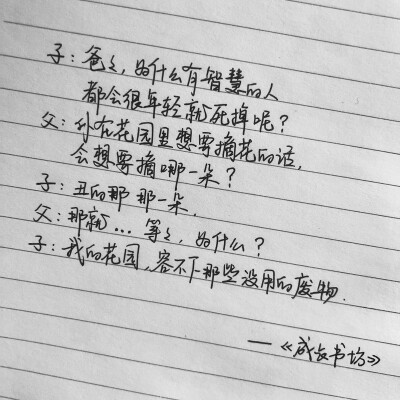 子：爸々，为什么有智慧的人
都会很年轻就死掉呢？
父：你在花园里想要摘花的话，
会想要摘哪一朵？
子：丑的那 那一朵．
父：那就…等々，为什么？
子：我的花园，容不下那些没用的废物．
—《成长书坊》